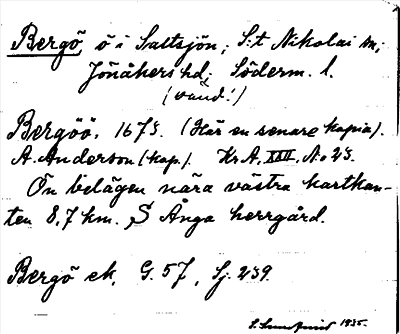 Bergö, ö i Saltsjön, S:t Nikolai sn,
Jönåkers hd, Söderm. l.
(vänd!)
Bergöö. 1673. (Här en senare kopia).
A. Anderson (kop.). Kr.A. XXII, No 23.
Ön belägen nära västra kartkan-
ten 8,7 km. S Ånga herrgård.
Bergö ek. G. 57, Sj. 239.
1935.